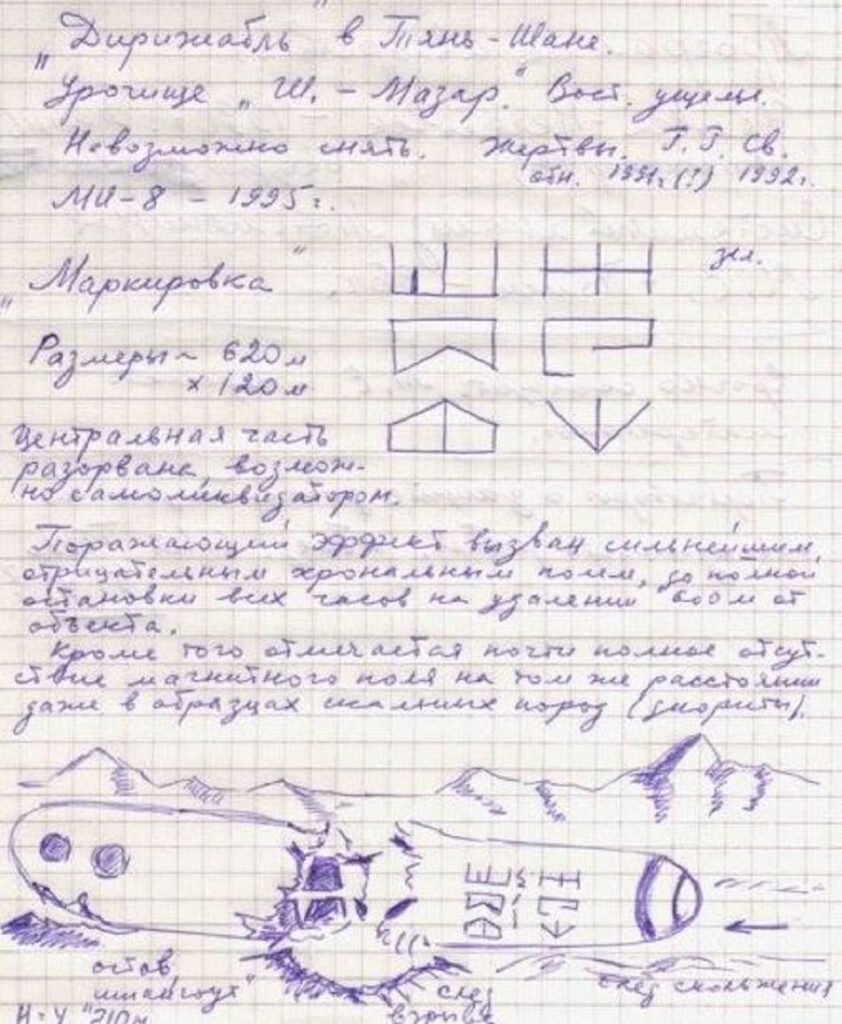 "Дирижабль" в Тянь-Шане.
Урочище "Ш.-Мазар." Вост. ущелье.
Невозможно снять. Жертвы. Г.Г. Св.
МИ-8 - 1995г. 1991г.(?) 1992г.
"Маркировка"
Размеры ~ 620м
х 120м
Центральная часть
разорвана, возмож-
но самоликвизатором.
Поражающий эффект вызван сильнейшим,
отрицательным хрональным полем, до полной
остановки всех часов на удалении 600м от
объекта.
Кроме того отмечается почти полное отсут-
ствие магнитного поля на том же расстоянии
даже в образцах скальных пород (диориты).
остов
шпангоут"
след
взрыва
след скольжения